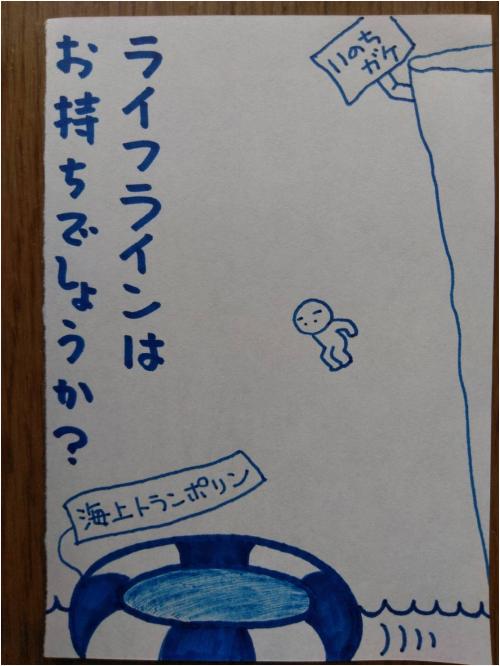 ライフラインは
お持ちでしょうか?
いのち
ガケ
海上トランポリン